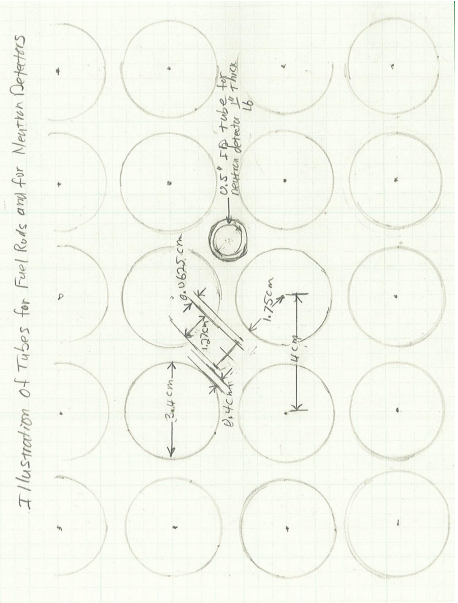 Illustration Of Tubes for Fuel Rods and for Neutron Detectors
0.5" ID tube for
neutron detector 1/16" thick
0.0625 cm
1.27cm
3.4cm
0.4cm
1.75cm
4cm